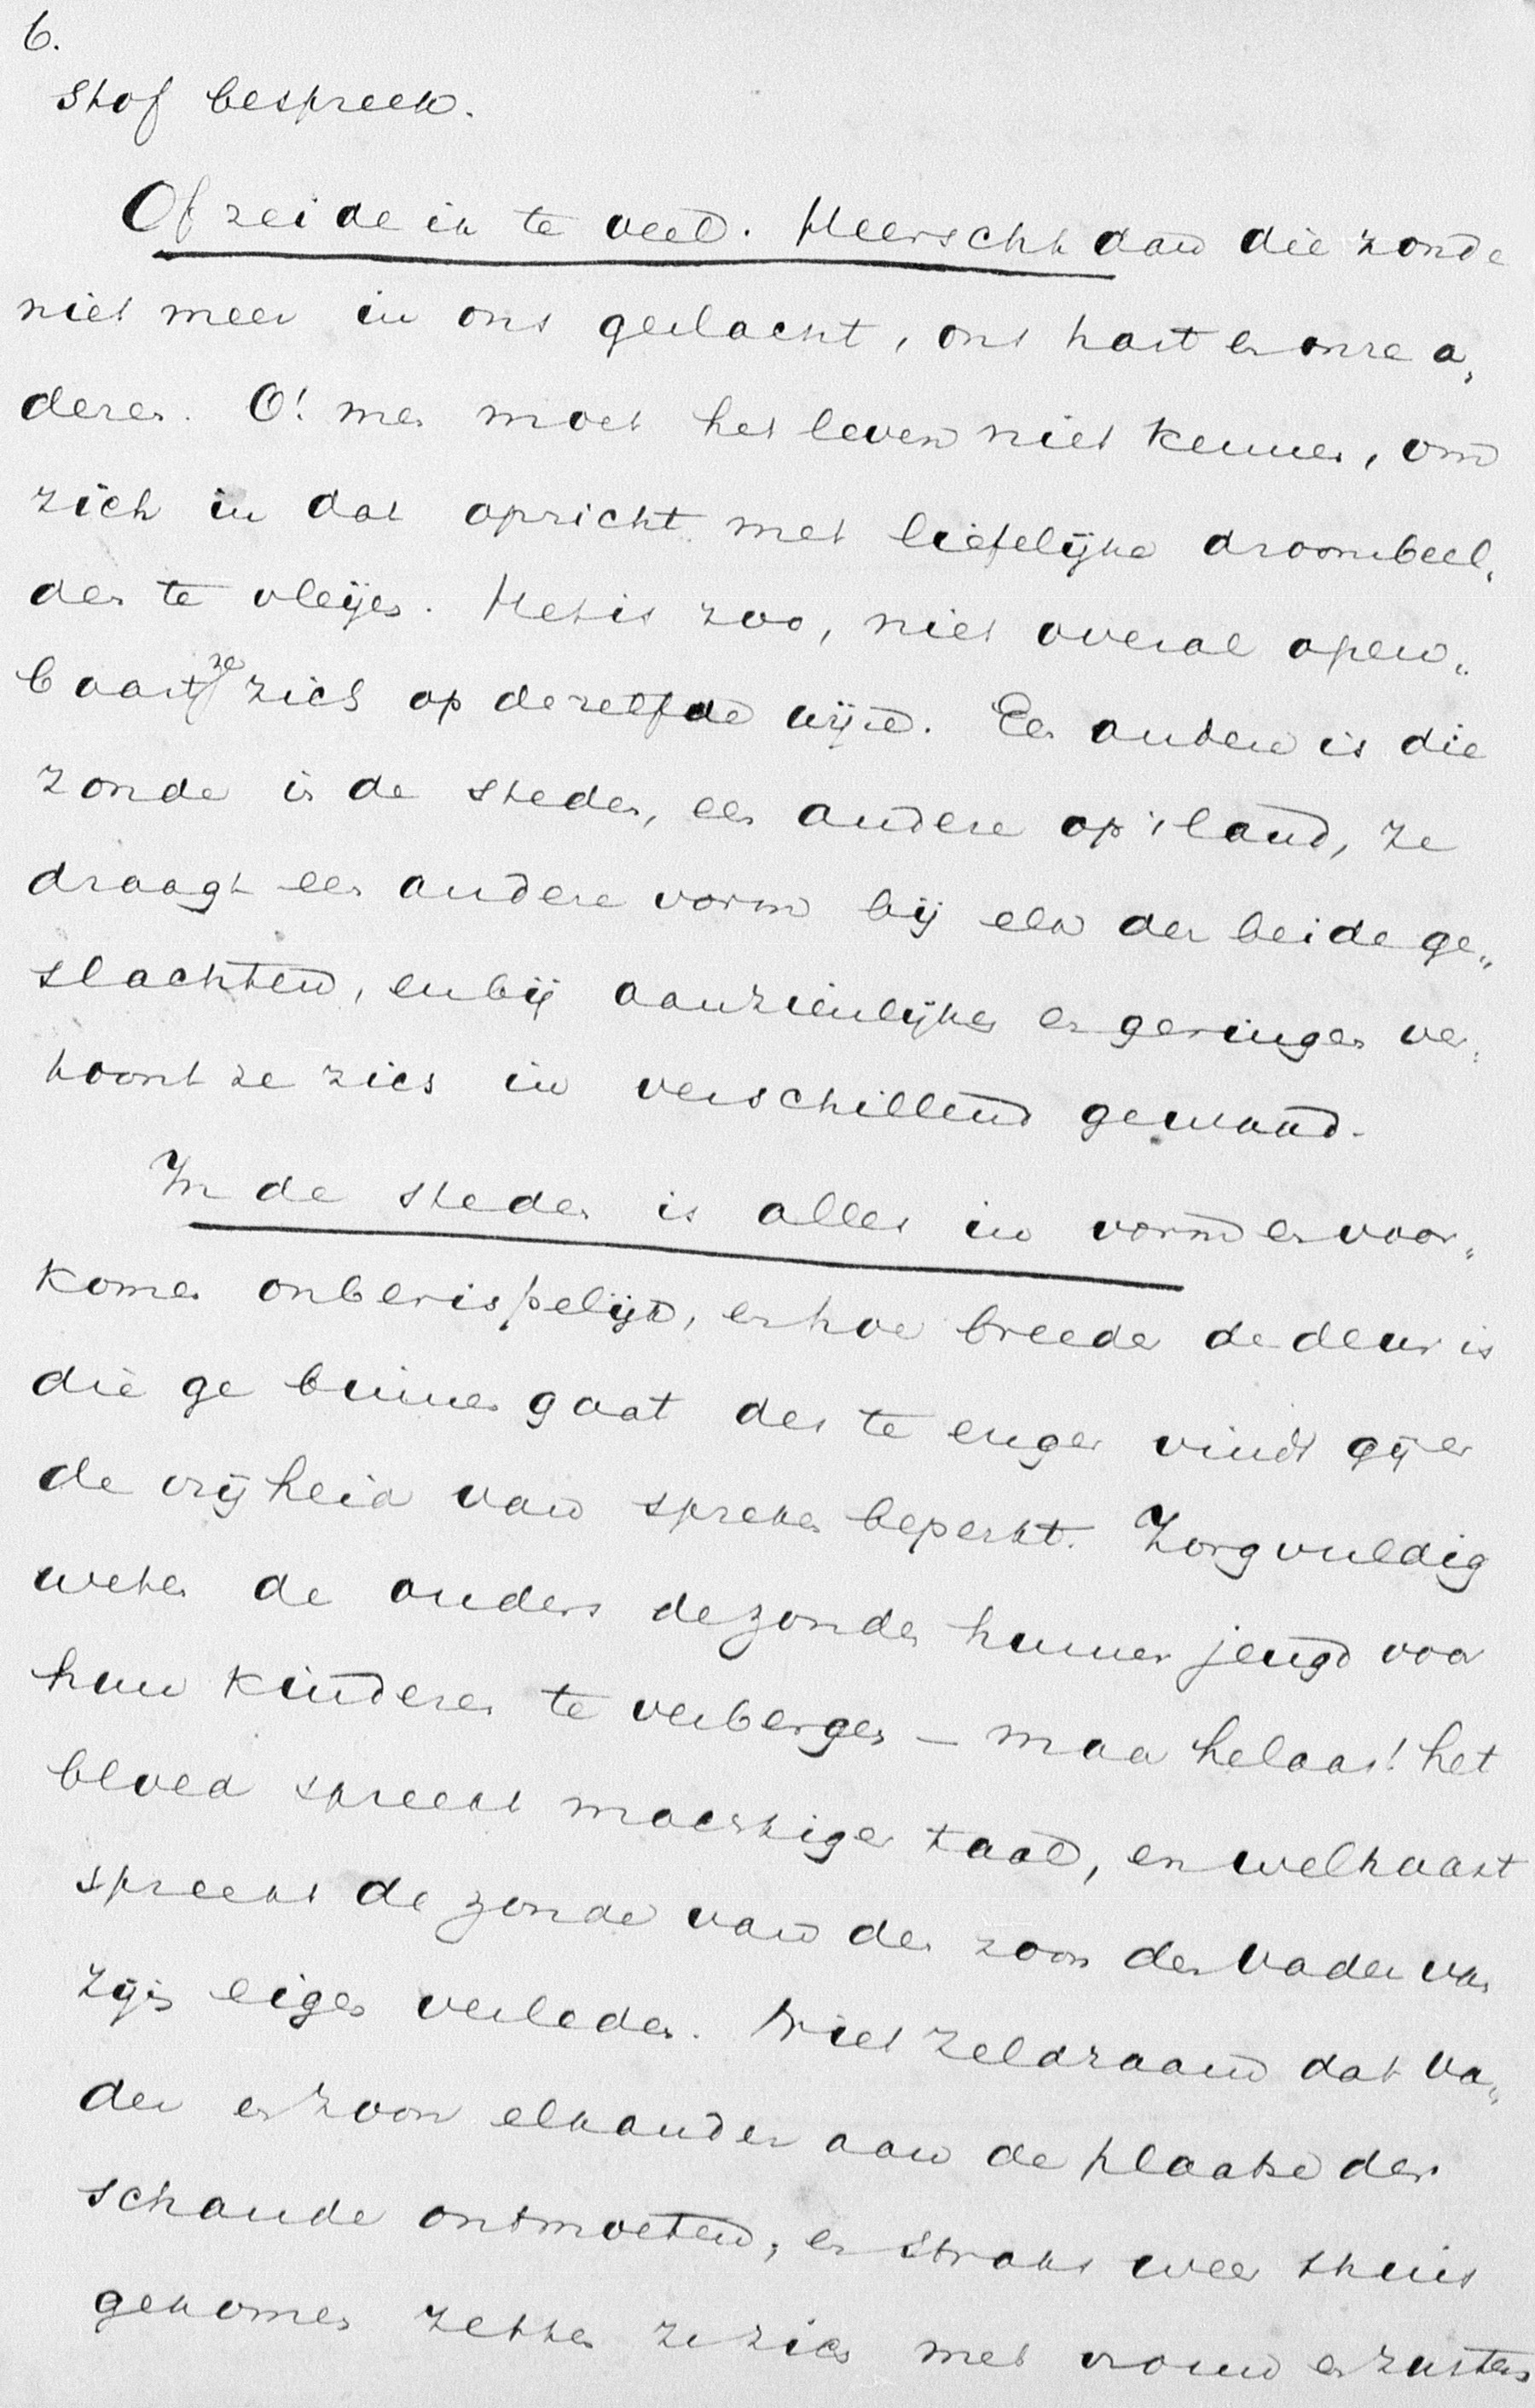 6.
stof bespreek.
Of zeide ik te veel. Heerscht dan die zonde
niet meer in ons geslacht, ons hart en onze a„
deren. O! men moet het leven niet kennen, om
zich in dat opzicht met liefelijke droombeel„
den te vleijen. Het is zoo, niet overal open„
baart ze zich op dezelfde wijze. Een andere is die
zonde in de steden, een andere op 't land, ze
draagt een andere vorm bij elk der beide ge„
slachten, en bij aanzienlijken en geringen ver„
toont ze zich in verschillend gewaad.
In de steden is alles in vorm en voor„
komen onberispelijk, en hoe breeder de deur is
die ge binnen gaat des te enger vindt gij er
de vrijheid van spreken beperkt. Zorgvuldig
weten de ouders de zonden hunner jeugd voor
hun kinderen te verbergen – maar helaas! het
bloed spreekt machtiger taal, en welhaast
spreekt de zonde van den zoon den vader van
zijn eigen verleden. Niet zeldzaam dat va„
der en zoon elkander aan de plaatse der
schande ontmoeten, en straks weer thuis
gekomen zetten ze zich met vrouw en zusters